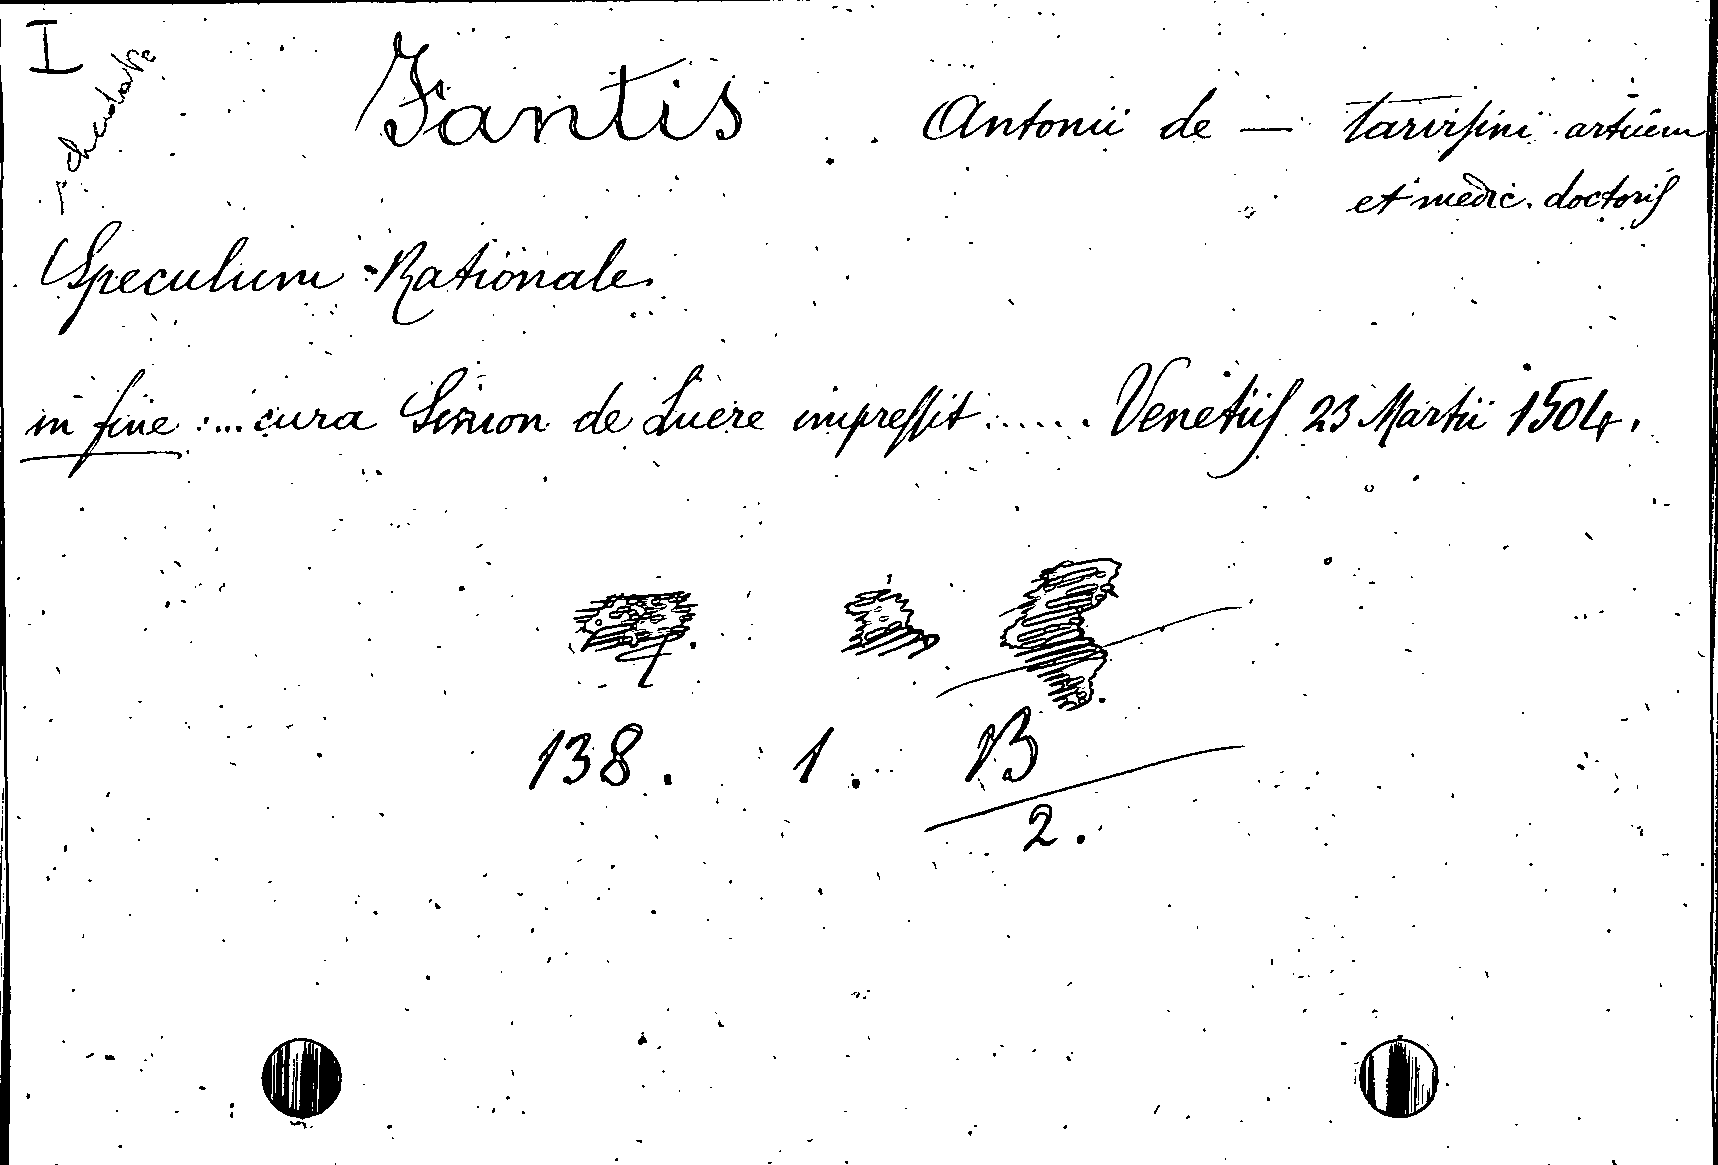 I
Fantis Antonii de — tarvisini artium
et medic. doctoris
Speculum Rationale
in fine : ... cura Simon de Luere impressit ...... Venetiis 23 Martii 1504.
138. 1. B
2.